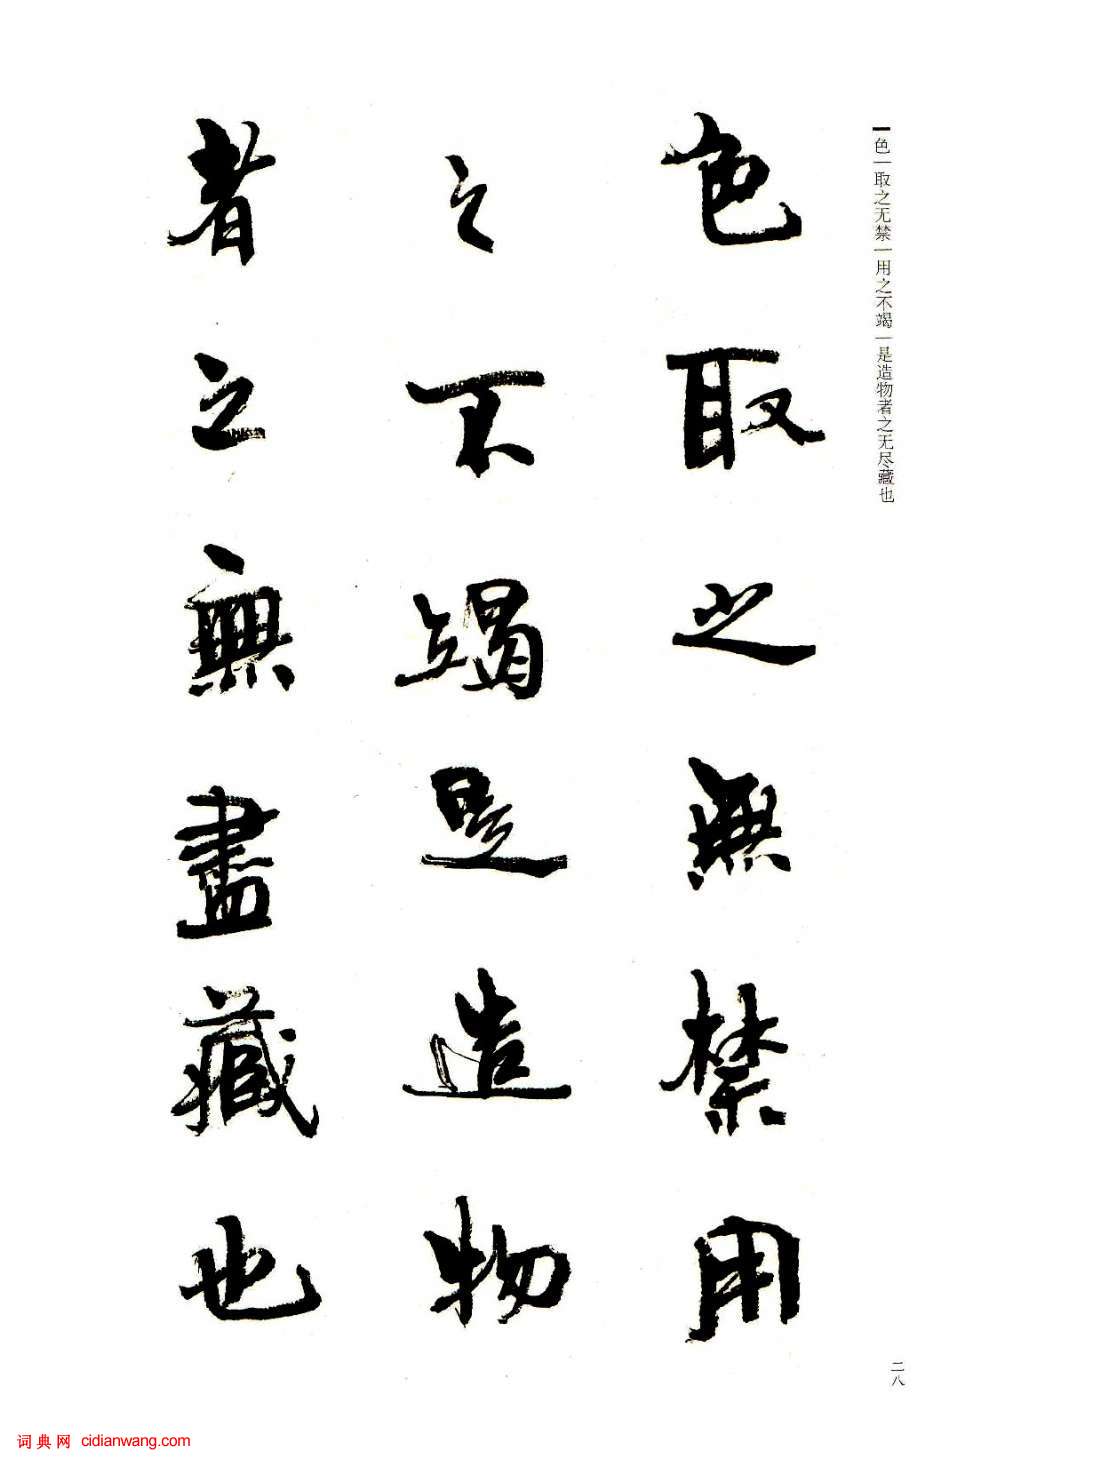 色|取之无禁|用之不竭|是造物者之无尽藏也
色取之無禁用
之不竭是造物
者之無盡藏也
二八
词典网 cidianwang.com